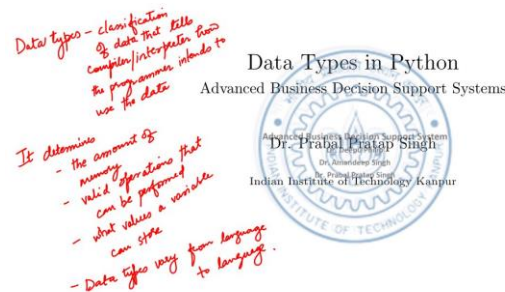 Data types - classification
of data that tells
compiler/interpreter how
the programmer intends to
use the data
It determines
- the amount of
memory
- valid operations that
can be performed
- what values a variable
can store
- Data types vary from language
to language.
Data Types in Python
Advanced Business Decision Support Systems
Advanced Business Decision Support System
Dr. Prabal Pratap Singh
Dr. Amandeep Singh
Dr. Prabal Pratap Singh
Indian Institute of Technology Kanpur
INDIAN INSTITUTE OF TECHNOLOGY KANPUR